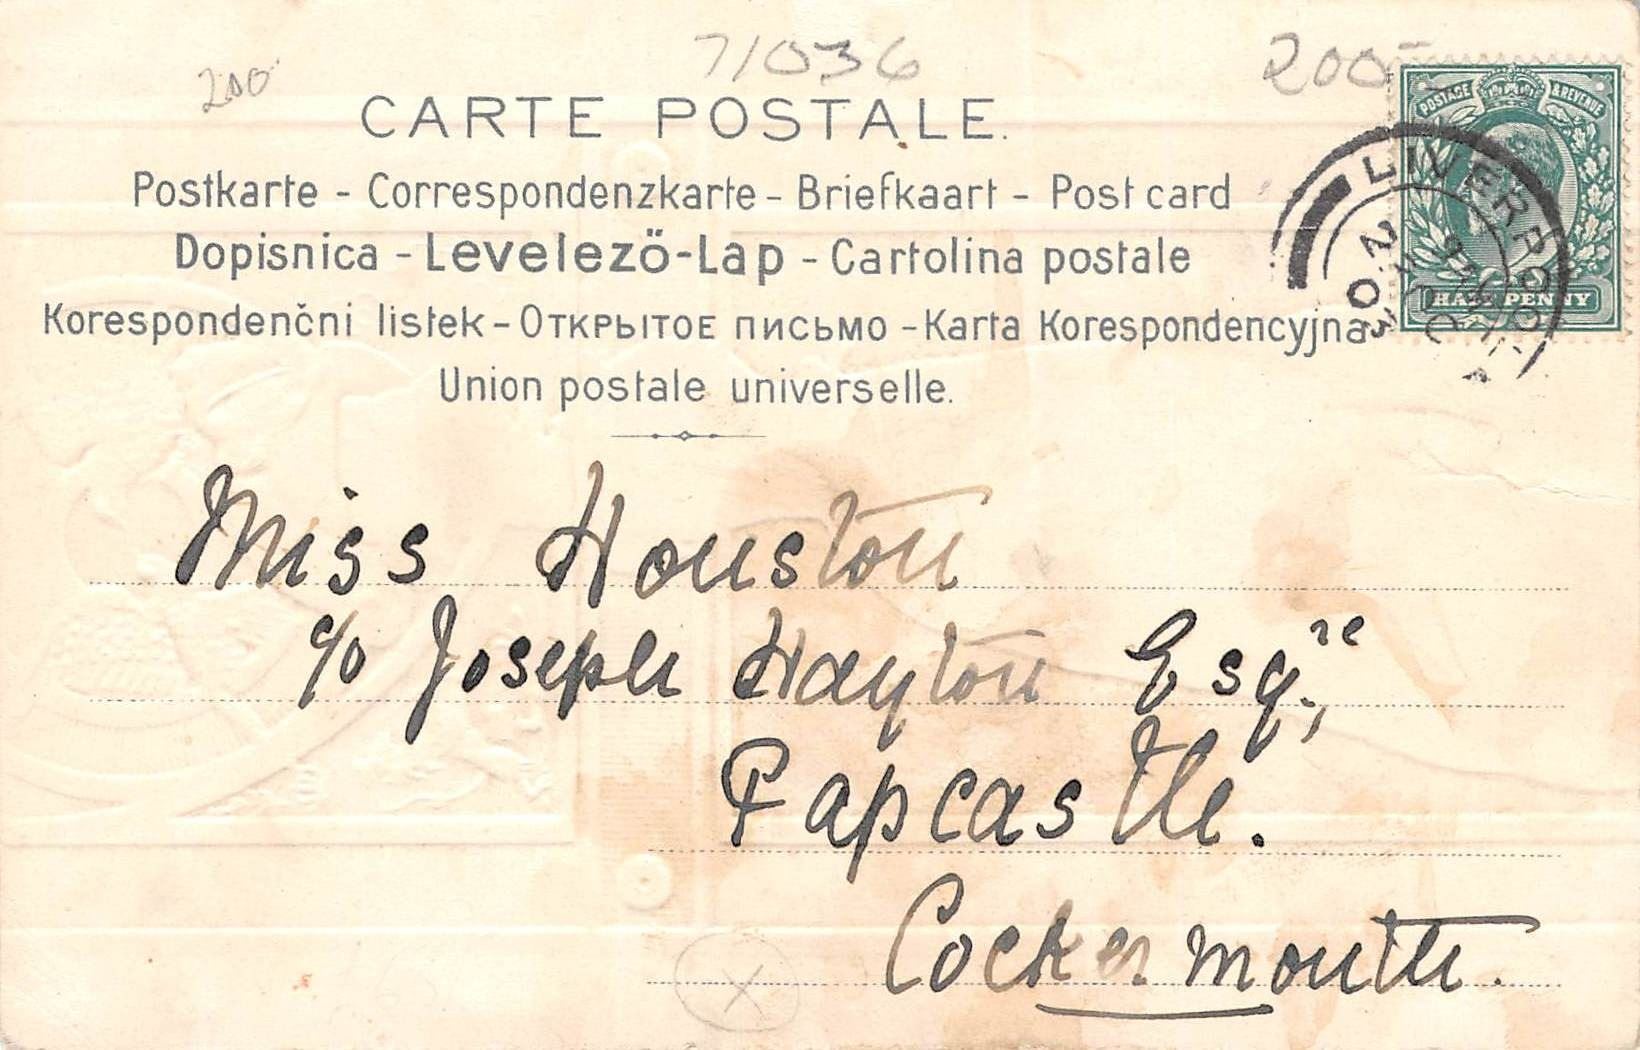 71036
200
200-
CARTE POSTALE.
POSTAGE & REVENUE
Postkarte - Correspondenzkarte - Briefkaart - Post card
LIVERPOOL
Dopisnica - Levelező-Lap - Cartolina postale
HALF PENNY
Korespondenčni listek - Открытое письмо - Karta Korespondencyjna
Union postale universelle.
Miss Houston
c/o Joseph Hayton Esq.re,
Papcastle.
Cockermouth.
X